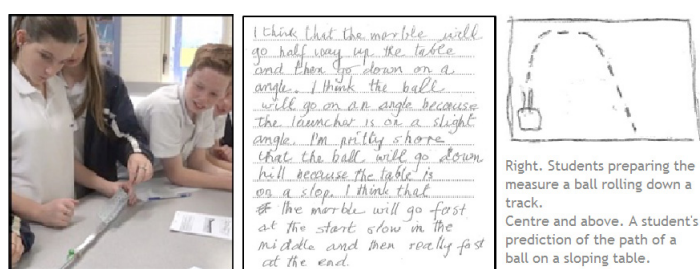 I think that the marble will
go half way up the table
and then go down on a
angle. I think the ball
will go on an angle because
the launcher is on a slight
angle. I'm pritty shore
that the ball will go down
hill because the table is
on a slop. I think that
the marble will go fast
at the start slow in the
middle and then really fast
at the end.
Right. Students preparing the
measure a ball rolling down a
track.
Centre and above. A student's
prediction of the path of a
ball on a sloping table.